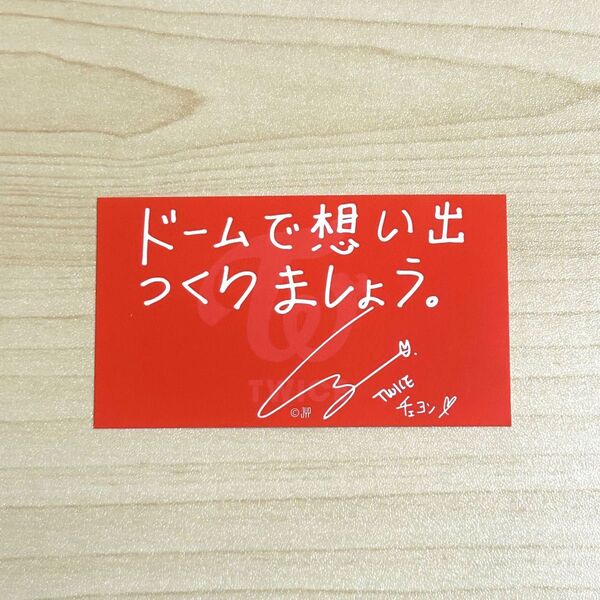 ドームで想い出
つくりましょう。
TWICE
TWICE
チェヨン
©JYP